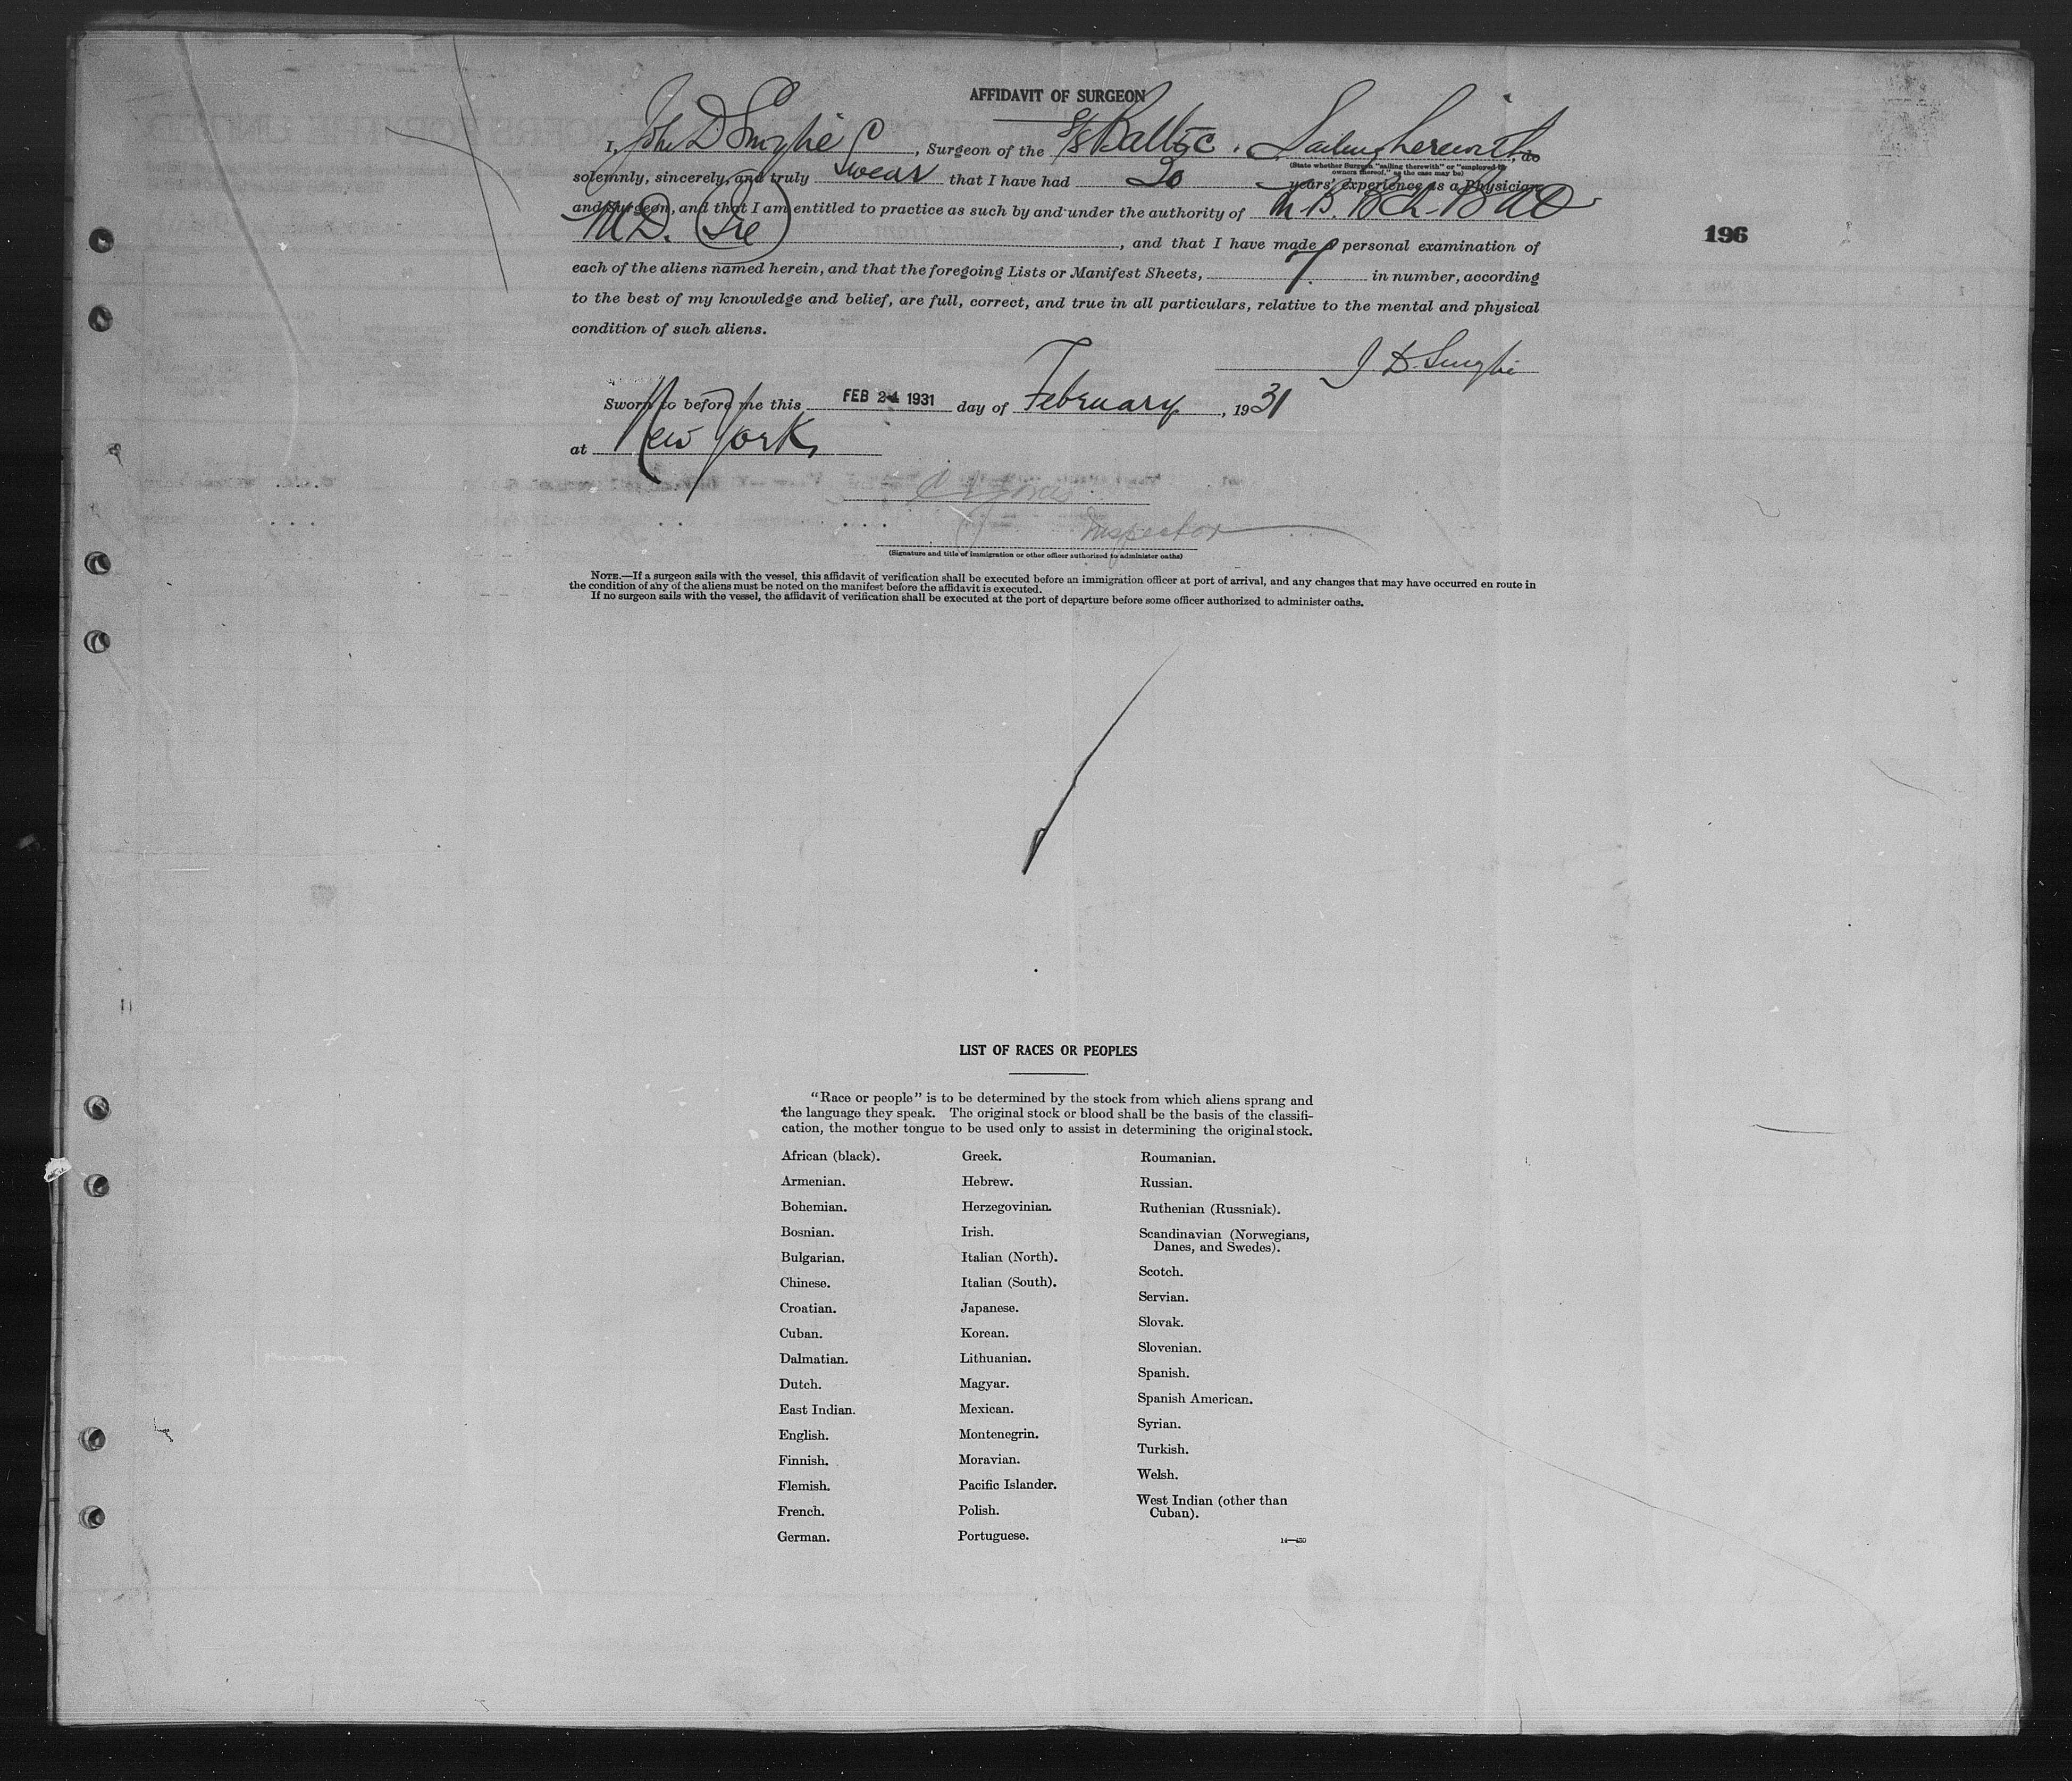 AFFIDAVIT OF SURGEON
I, John D Smylie, Surgeon of the S/S Baltic. Sailing therewith, do
(State whether Surgeon "sailing therewith" or "employed by owners thereof," as the case may be)
solemnly, sincerely, and truly Swear that I have had 20 years' experience as a Physician
and Surgeon, and that I am entitled to practice as such by and under the authority of M.B. B.Ch. B.A.O
M.D. (Ire), and that I have made a personal examination of
196
each of the aliens named herein, and that the foregoing Lists or Manifest Sheets, 7. in number, according
to the best of my knowledge and belief, are full, correct, and true in all particulars, relative to the mental and physical
condition of such aliens.
J D Smylie
Sworn to before me this FEB 24 1931 day of February, 1931
at New York
Inspector
(Signature and title of immigration or other officer authorized to administer oaths)
NOTE.—If a surgeon sails with the vessel, this affidavit of verification shall be executed before an immigration officer at port of arrival, and any changes that may have occurred en route in
the condition of any of the aliens must be noted on the manifest before the affidavit is executed.
If no surgeon sails with the vessel, the affidavit of verification shall be executed at the port of departure before some officer authorized to administer oaths.
LIST OF RACES OR PEOPLES
"Race or people" is to be determined by the stock from which aliens sprang and
the language they speak. The original stock or blood shall be the basis of the classifi-
cation, the mother tongue to be used only to assist in determining the original stock.
African (black).
Armenian.
Bohemian.
Bosnian.
Bulgarian.
Chinese.
Croatian.
Cuban.
Dalmatian.
Dutch.
East Indian.
English.
Finnish.
Flemish.
French.
German.
Greek.
Hebrew.
Herzegovinian.
Irish.
Italian (North).
Italian (South).
Japanese.
Korean.
Lithuanian.
Magyar.
Mexican.
Montenegrin.
Moravian.
Pacific Islander.
Polish.
Portuguese.
Roumanian.
Russian.
Ruthenian (Russniak).
Scandinavian (Norwegians,
Danes, and Swedes).
Scotch.
Servian.
Slovak.
Slovenian.
Spanish.
Spanish American.
Syrian.
Turkish.
Welsh.
West Indian (other than
Cuban).
14—430